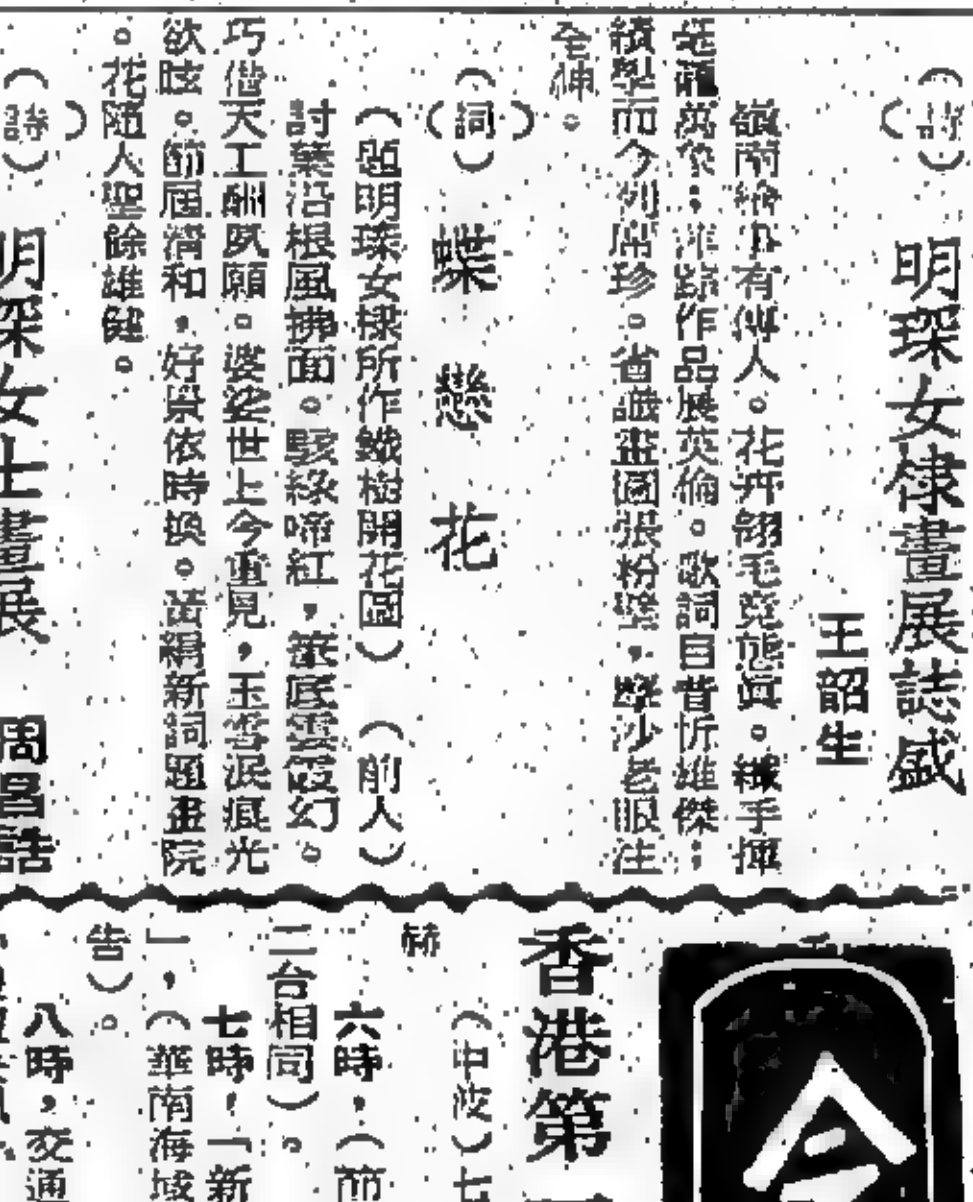 （詩）明琛女棣畫展誌盛
王韶生
嶺南繪事有傳人。花卉翎毛竞態眞。纖手揮
萬象；洋踪作品展英倫。歌詞自昔忻雄傑；
績學而今列席珍。省識畫圖張粉壁，摩沙老眼注
全神。
（詞）蝶戀花
（題明琛女棣所作鐵樹開花圖）（前人）
討葉沿根風拂面。駭綠啼紅，筆底雲霞幻。
巧偕天工酬夙願。婆娑世上今重見，玉雪淚痕光
欲眩。節屆清和，好景依時換。黃絹新詞題畫院
。花隨人聖餘雄健。
（詩）明琛女士畫展 周昌
香港第
（中波）七
赫
六時，（節
二台相同）。
七時，「新
」，（華南海域
告）。
八時，交通